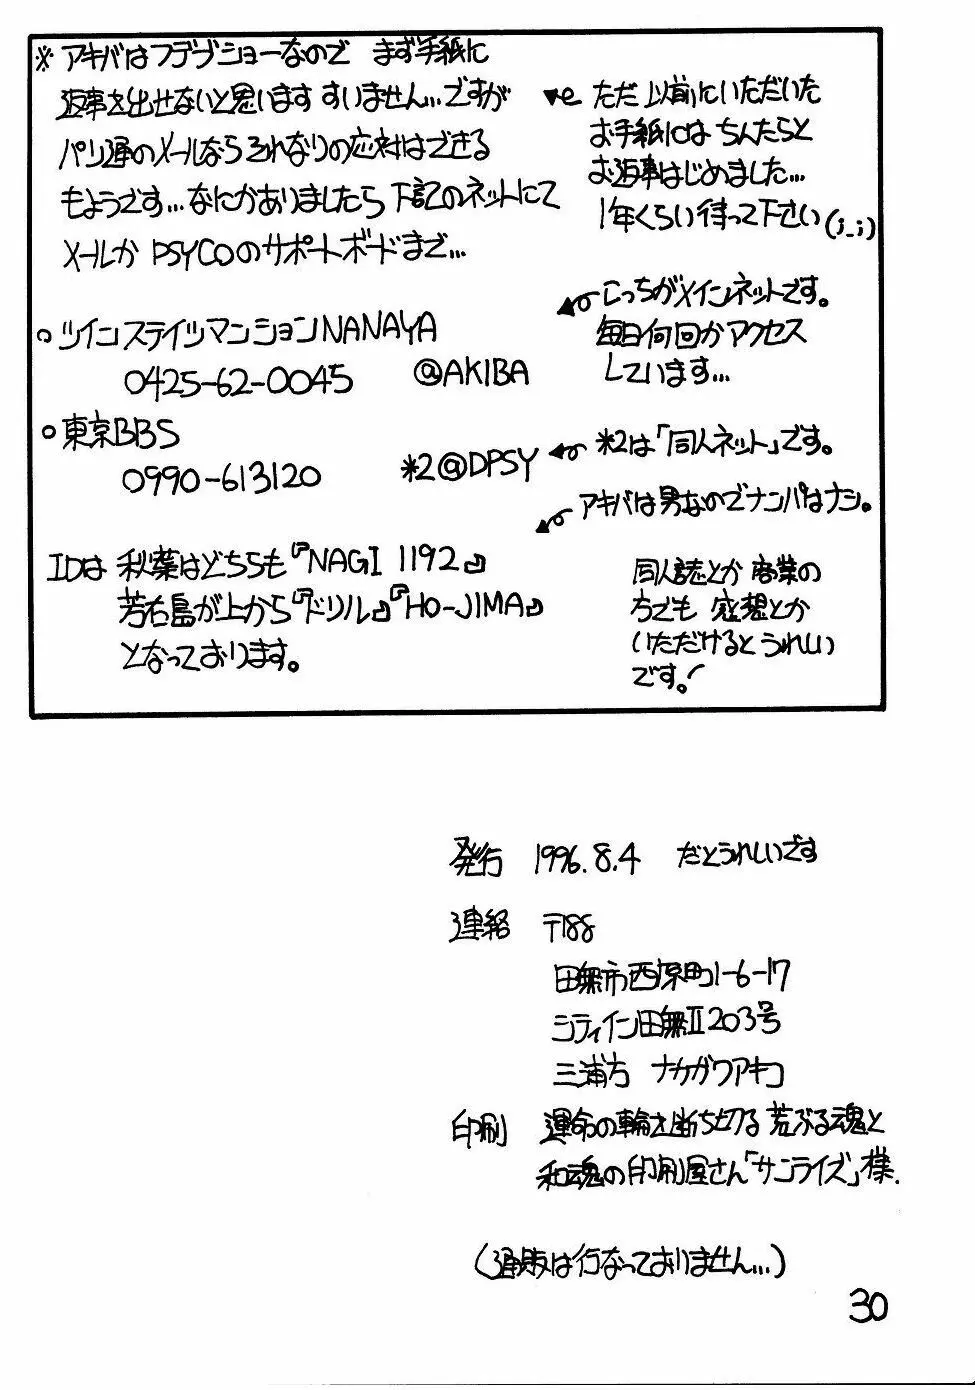 ※アキバはフデブショーなので まず手紙に
返事を出せないと思います すいません…ですが
パソ通のメールならそれなりの応対はできる
もようです…なにかありましたら下記のネットにて
メールか PSYCOのサポートボードまで…
ただ 以前にいただいた
お手紙には ちんたらと
お返事はじめました…
1年くらい待って下さい(;_;)
○ツインステイツマンションNANAYA
0425-62-0045 @AKIBA
こっちがメインネットです。
毎日何回かアクセス
しています…
○東京BBS
0990-613120 *2@DPSY
*2は「同人ネット」です。
アキバは男なのでナンパはナシ。
IDは 秋葉はどちらも『NAGI 1192』
芳右島が上から『ドリル』『HO-JIMA』
となっております。
同人誌とか 商業の
方でも 感想とか
いただけるとうれしい
です。!
発行 1996.8.4 だとうれしいです
連絡 〒188
田無市西原町1-6-17
シティイン田無Ⅱ203号
三浦方 ナカガワアキコ
印刷 運命の輪を断ち切る 荒ぶる魂と
和魂の印刷屋さん「サンライズ」様.
(通販は行なっておりません…)
30